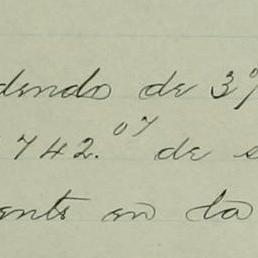 dendo de 3%
742.07 de s
ente en la